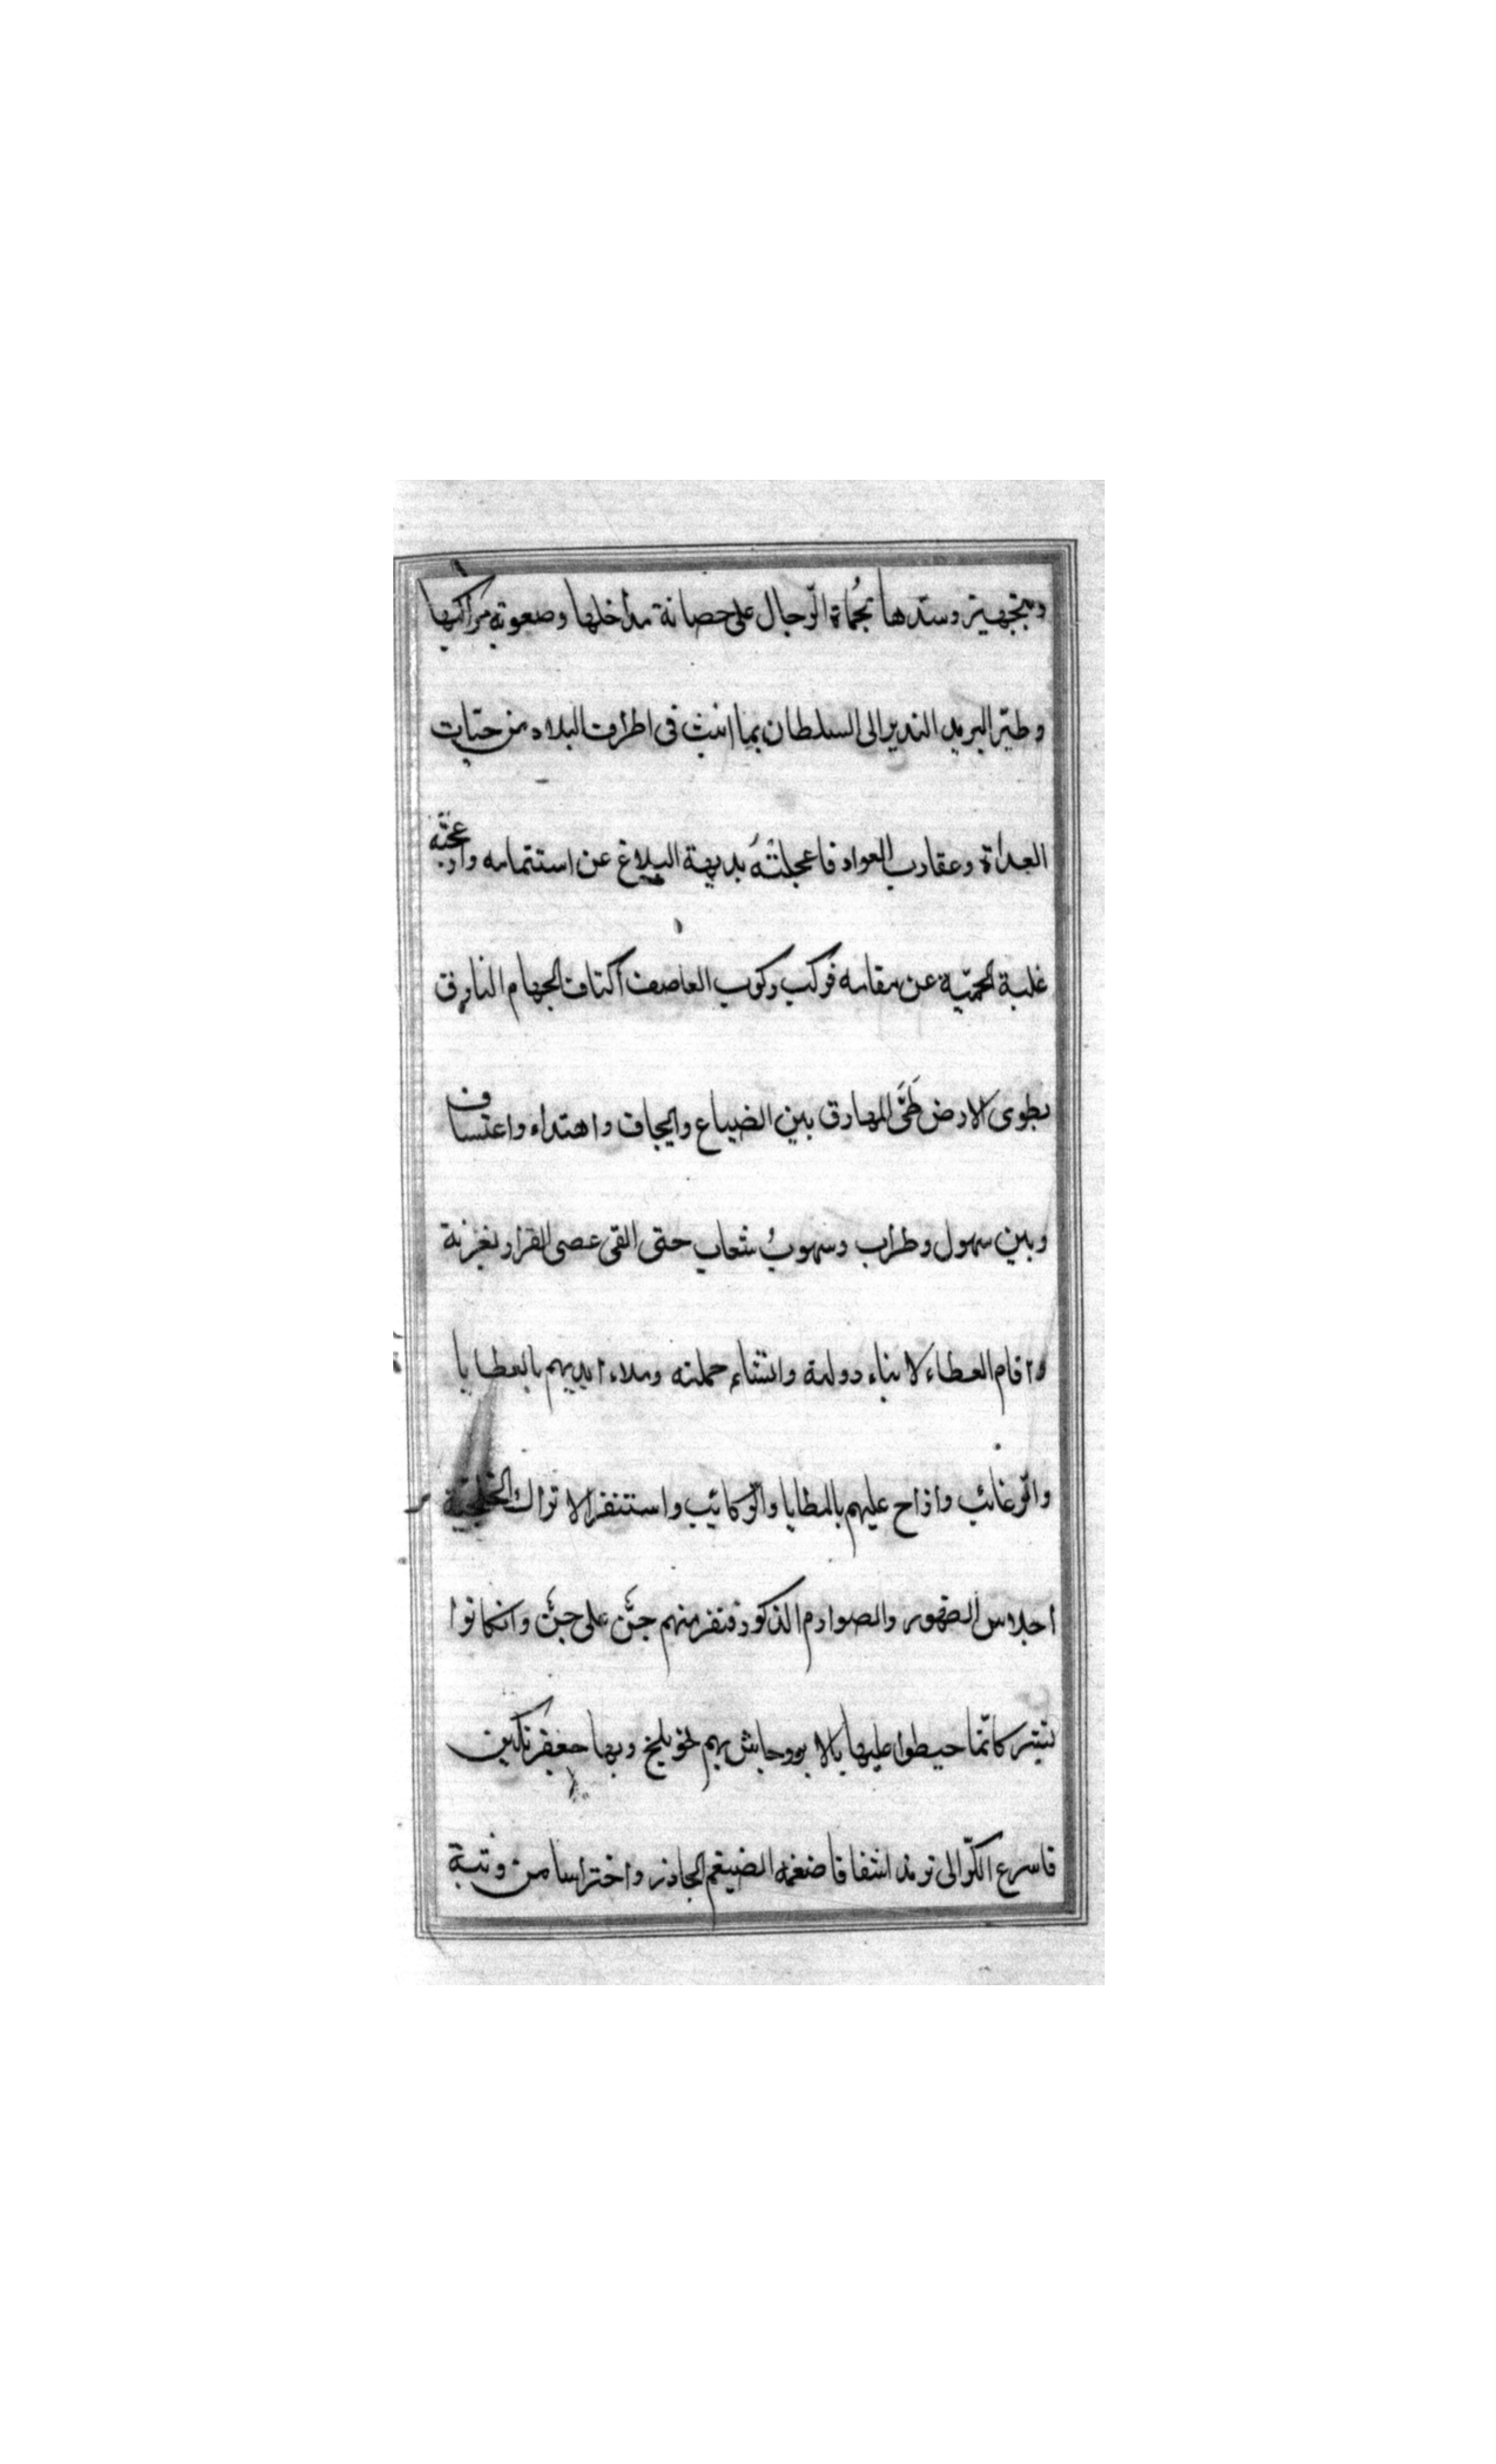 وپنجهیر وسدها بحُماة الرّجال على حصانة مداخلها وصعوبة مراكبها
وطيّر البريد النذير الى السلطان بما انبث فى اطراف البلاد من حيّات
العداة وعقارب العواد فاعجلتْهُ بديهة البلاغ عن استتمامه وازعجتّه
غلبة الحميّة عن مقامه فركب ركوب العاصف اكتاف الجهام البارق
يطوى الارض طَىَّ المهارق بين الضياع وايجاف واهتداء واعتساف
وبين سهول وظراب وسهوبُ شعاب حتى القى عصى القرار بغزنة
واقام العطاء لابناء دولية وانشاء حملته وملاء ايديهم بالعطايا
والرّغائب وازاح عليهم بالمطايا والرّكائب واستنفر الاتراك الخلجية
احلاس الظهور والصوارم الذكور فنفر منهم جنٌّ على جنٌّ وانكانوا
تيتر كانّما حيطوا عليها بالابر وجاش بهم نحو بلخ وبها جعفر تكين
فاسرع الكرّ الى ترمذ اشفاقا ضغمة الضيغم الجاذر واختراسا من وثبة